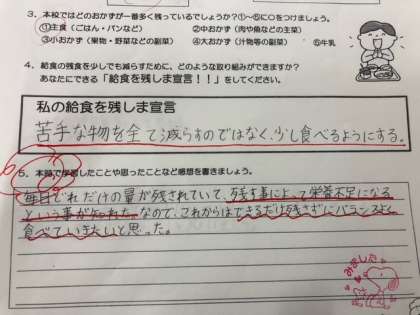 3. 本校ではどのおかずが一番多く残っているでしょうか?①〜⑤に○をつけましょう。
①主食（ごはん・パンなど） ②中おかず（肉や魚などの主菜）
③小おかず（果物・野菜などの副菜） ④大おかず（汁物等の副菜） ⑤牛乳
4. 給食の残食を少しでも減らすために、どのような取り組みができますか?
あなたにできる「給食を残しま宣言！！」をしてください。
私の給食を残しま宣言
苦手な物を全て減らすのではなく、少し食べるようにする。
5. 本時で学習したことや思ったことなど感想を書きましょう。
毎日どれだけの量が残されていて、残す事によって栄養不足になる
という事が知れた。なので、これからはできるだけ残さずにバランスよく
食べていきたいと思った。
みました